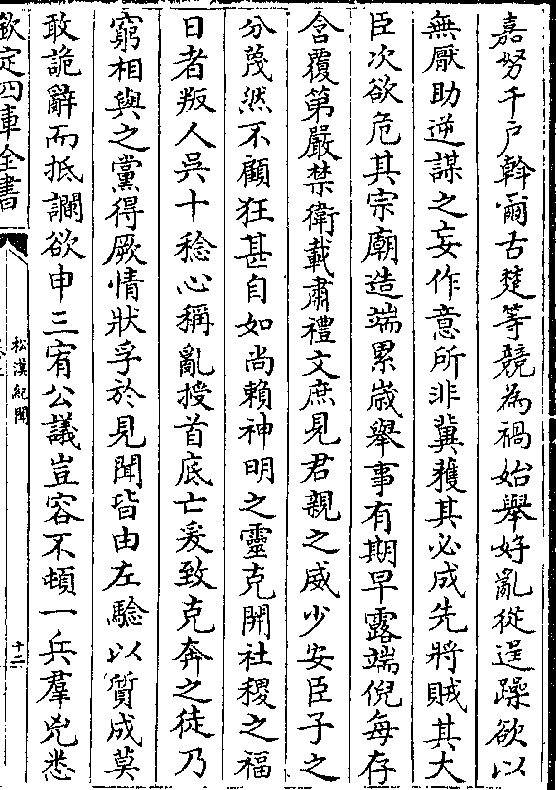 嘉努千戸斡爾古楚等競為禍始舉好亂從逞躁欲以
無厭助逆謀之妄作意所非冀獲其必成先將賊其大
臣次欲危其宗廟造端累嵗舉事有期早露端倪每存
含覆第嚴禁衛載肅禮文庶見君親之威少安臣子之
分蔑然不顧狂甚自如尚賴神明之靈克開社稷之福
日者叛人吳十稔心稱亂授首底亡爰致克奔之徒乃
窮相與之黨得厥情狀孚於見聞皆由左驗以質成莫
敢詭辭而抵讕欲申三宥公議豈容不頓一兵羣兇悉
欽定四庫全書
松漠紀聞
十二